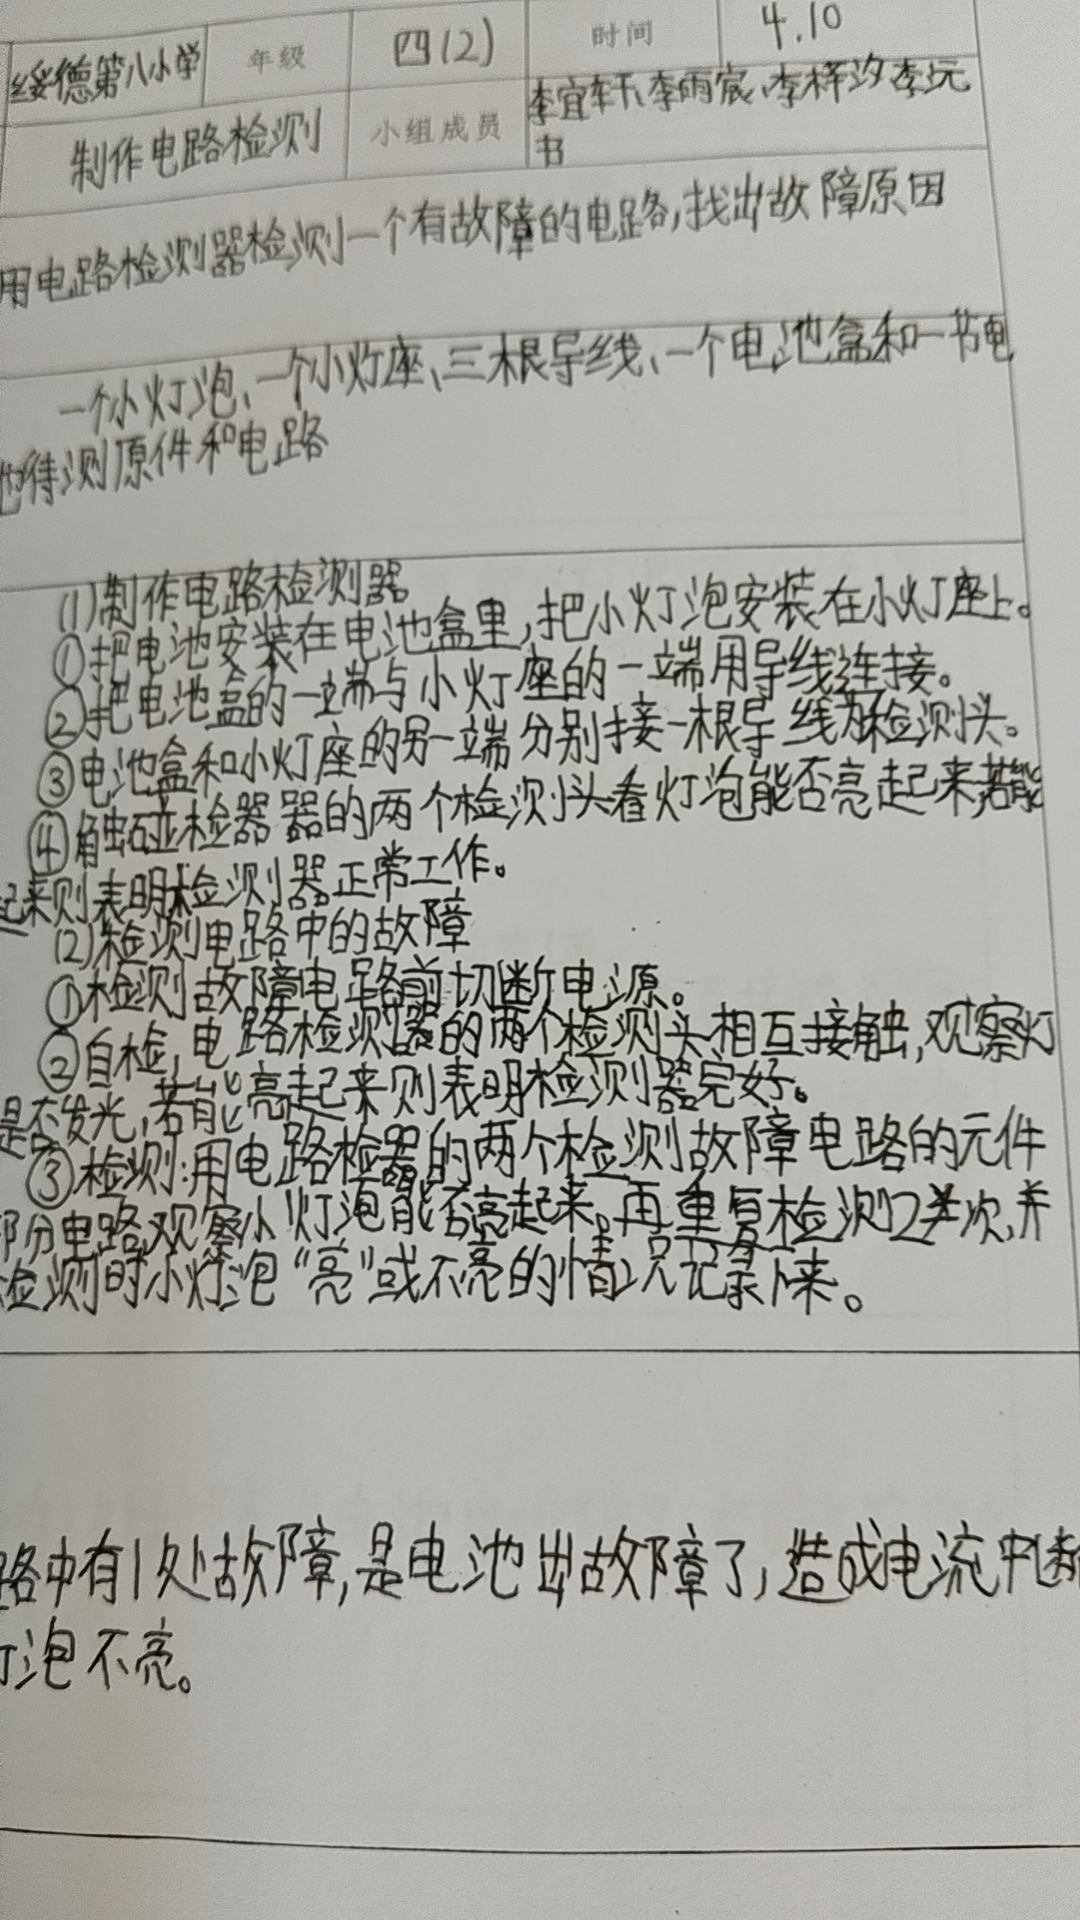 绥德第八小学 年级 四(2) 时间 4.10
制作电路检测 小组成员 李宜轩、李雨宸、李梓汐李沅
书
用电路检测器检测一个有故障的电路,找出故障原因
一个小灯泡、一个小灯座、三根导线、一个电池盒和一节电
池待测原件和电路
(1)制作电路检测器
①把电池安装在电池盒里,把小灯泡安装在小灯座上。
②把电池盒的一端与小灯座的一端用导线连接。
③电池盒和小灯座的另一端分别接一根导线为检测头。
④触碰检器器的两个检测头看灯泡能否亮起来,若能
起来则表明检测器正常工作。
(2)检测电路中的故障
①检测故障电路前切断电源。
②自检,电路检测器的两个检测头相互接触,观察灯
是否发光,若能亮起来则表明检测器完好。
③检测:用电路检器的两个检测故障电路的元件
部分电路,观察小灯泡能否亮起来,再重复检测2次,并
检测时小灯泡“亮”或不亮的情况记录下来。
路中有1处故障,是电池出故障了,造成电流中断
灯泡不亮。